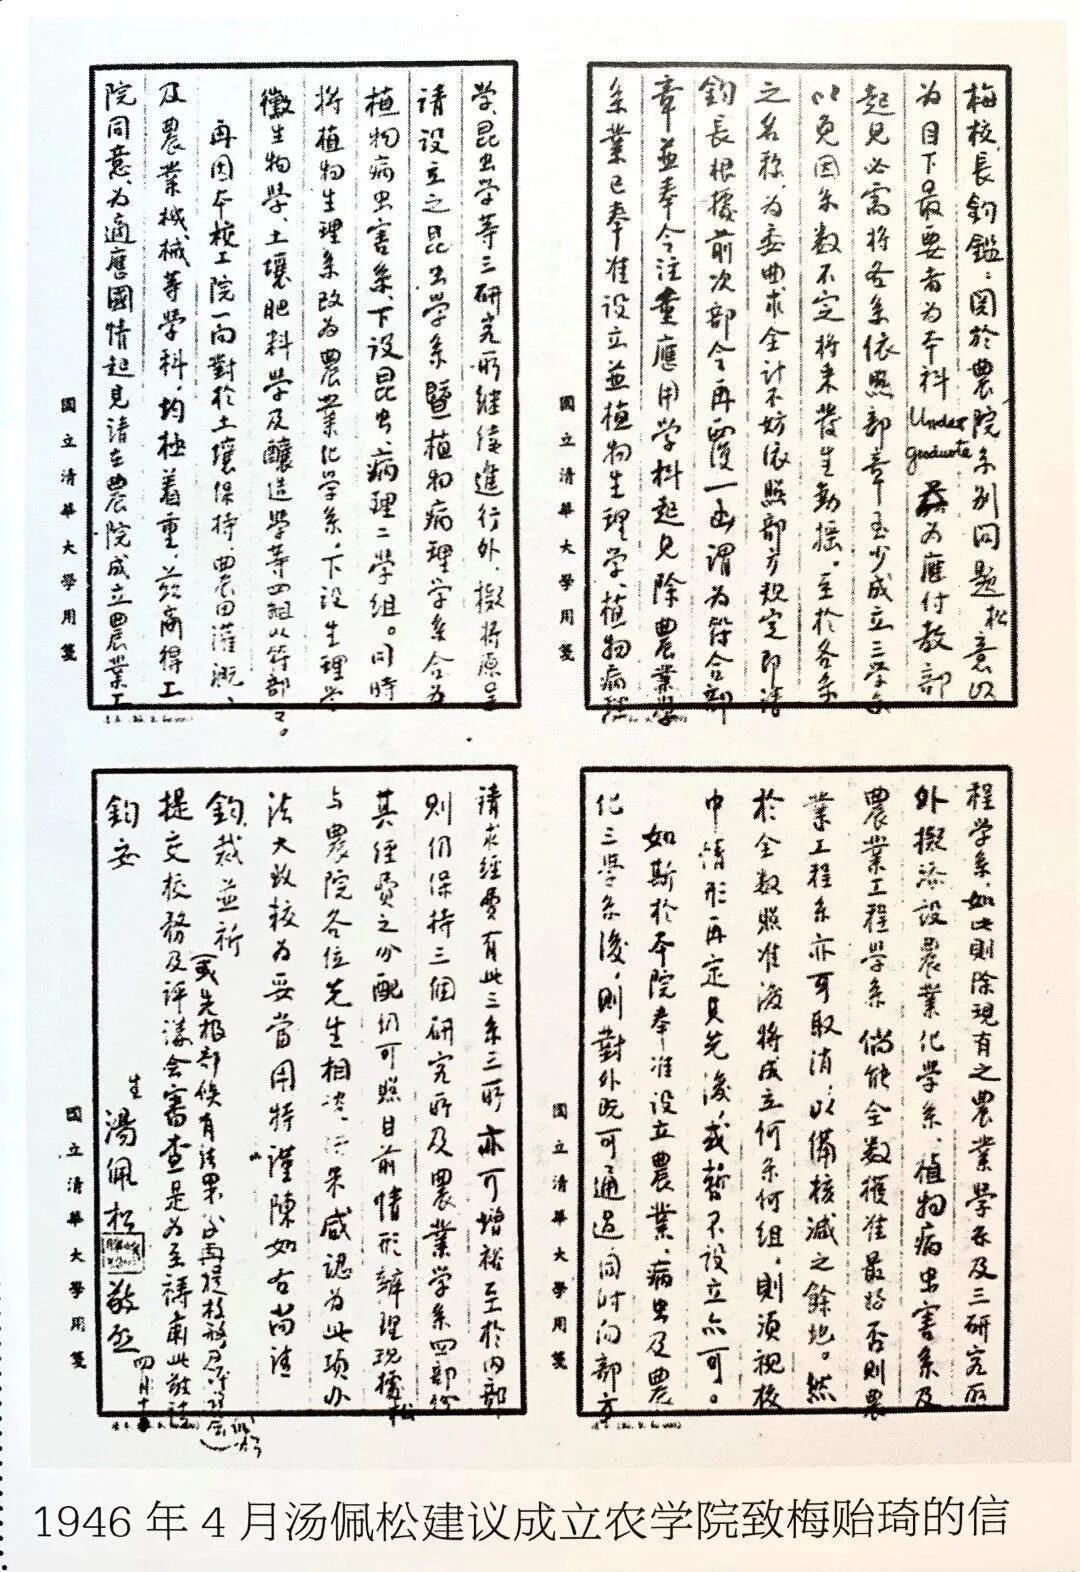 梅校長鈞鑑：関於農院系別问题松意以
为目下最要者为本科Undergraduate为應付教部
起見必需将各系依照部章至少成立三学系
以免因系数不定将来发生動摇。至於各系
之名称，为委曲求全计不妨依照部方规定即请
鈞長根據前次部令再覆一函謂为符合部
章並奉令注重應用学科起見除農業学
系業已奉准设立並植物生理学、植物病理
学、昆虫学等三研究所继续進行外，擬将原呈
请设立之昆虫学系暨植物病理学系合为
植物病虫害系，下设昆虫、病理二学组。同時
将植物生理系改为農業化学系，下设生理学
微生物學、土壤肥料學及釀造學等四組以符部令。
再因本校工院一向對於土壤保持、農田灌溉、
及農業机械等學科，均極着重，兹商得工
院同意，为適應國情起見請在農院成立農業工
程学系，如此則除現有之農業學系及三研究所
外擬添設農業化学系、植物病虫害系及
農業工程学系 倘能全数獲准最好否則農
業工程系亦可取消，以備核减之餘地。然
於全数照准後将成立何系何组，則须视校
中情形再定其先後，或暂不设立亦可。
如斯於本院奉准设立農業、病虫及農
化三學系後，則對外既可通过同时向部方
請求经费有此三系三所亦可增裕至於内部
則仍保持三個研究所及農業学系四部份
其经费之分配仍可照目前情形辦理现據松
与農院各位先生相决，结果咸認为此项办
法大致极为妥當用特謹陳如右尚请
鈞裁並祈（或先报部俟有结果後再提校務及評議会）
提交校務及評議会審查是为至禱肃此敬請
鈞安
生 湯佩松 敬啟 四月十
國立清華大學用箋
國立清華大學用箋
國立清華大學用箋
國立清華大學用箋
1946年4月汤佩松建议成立农学院致梅贻琦的信